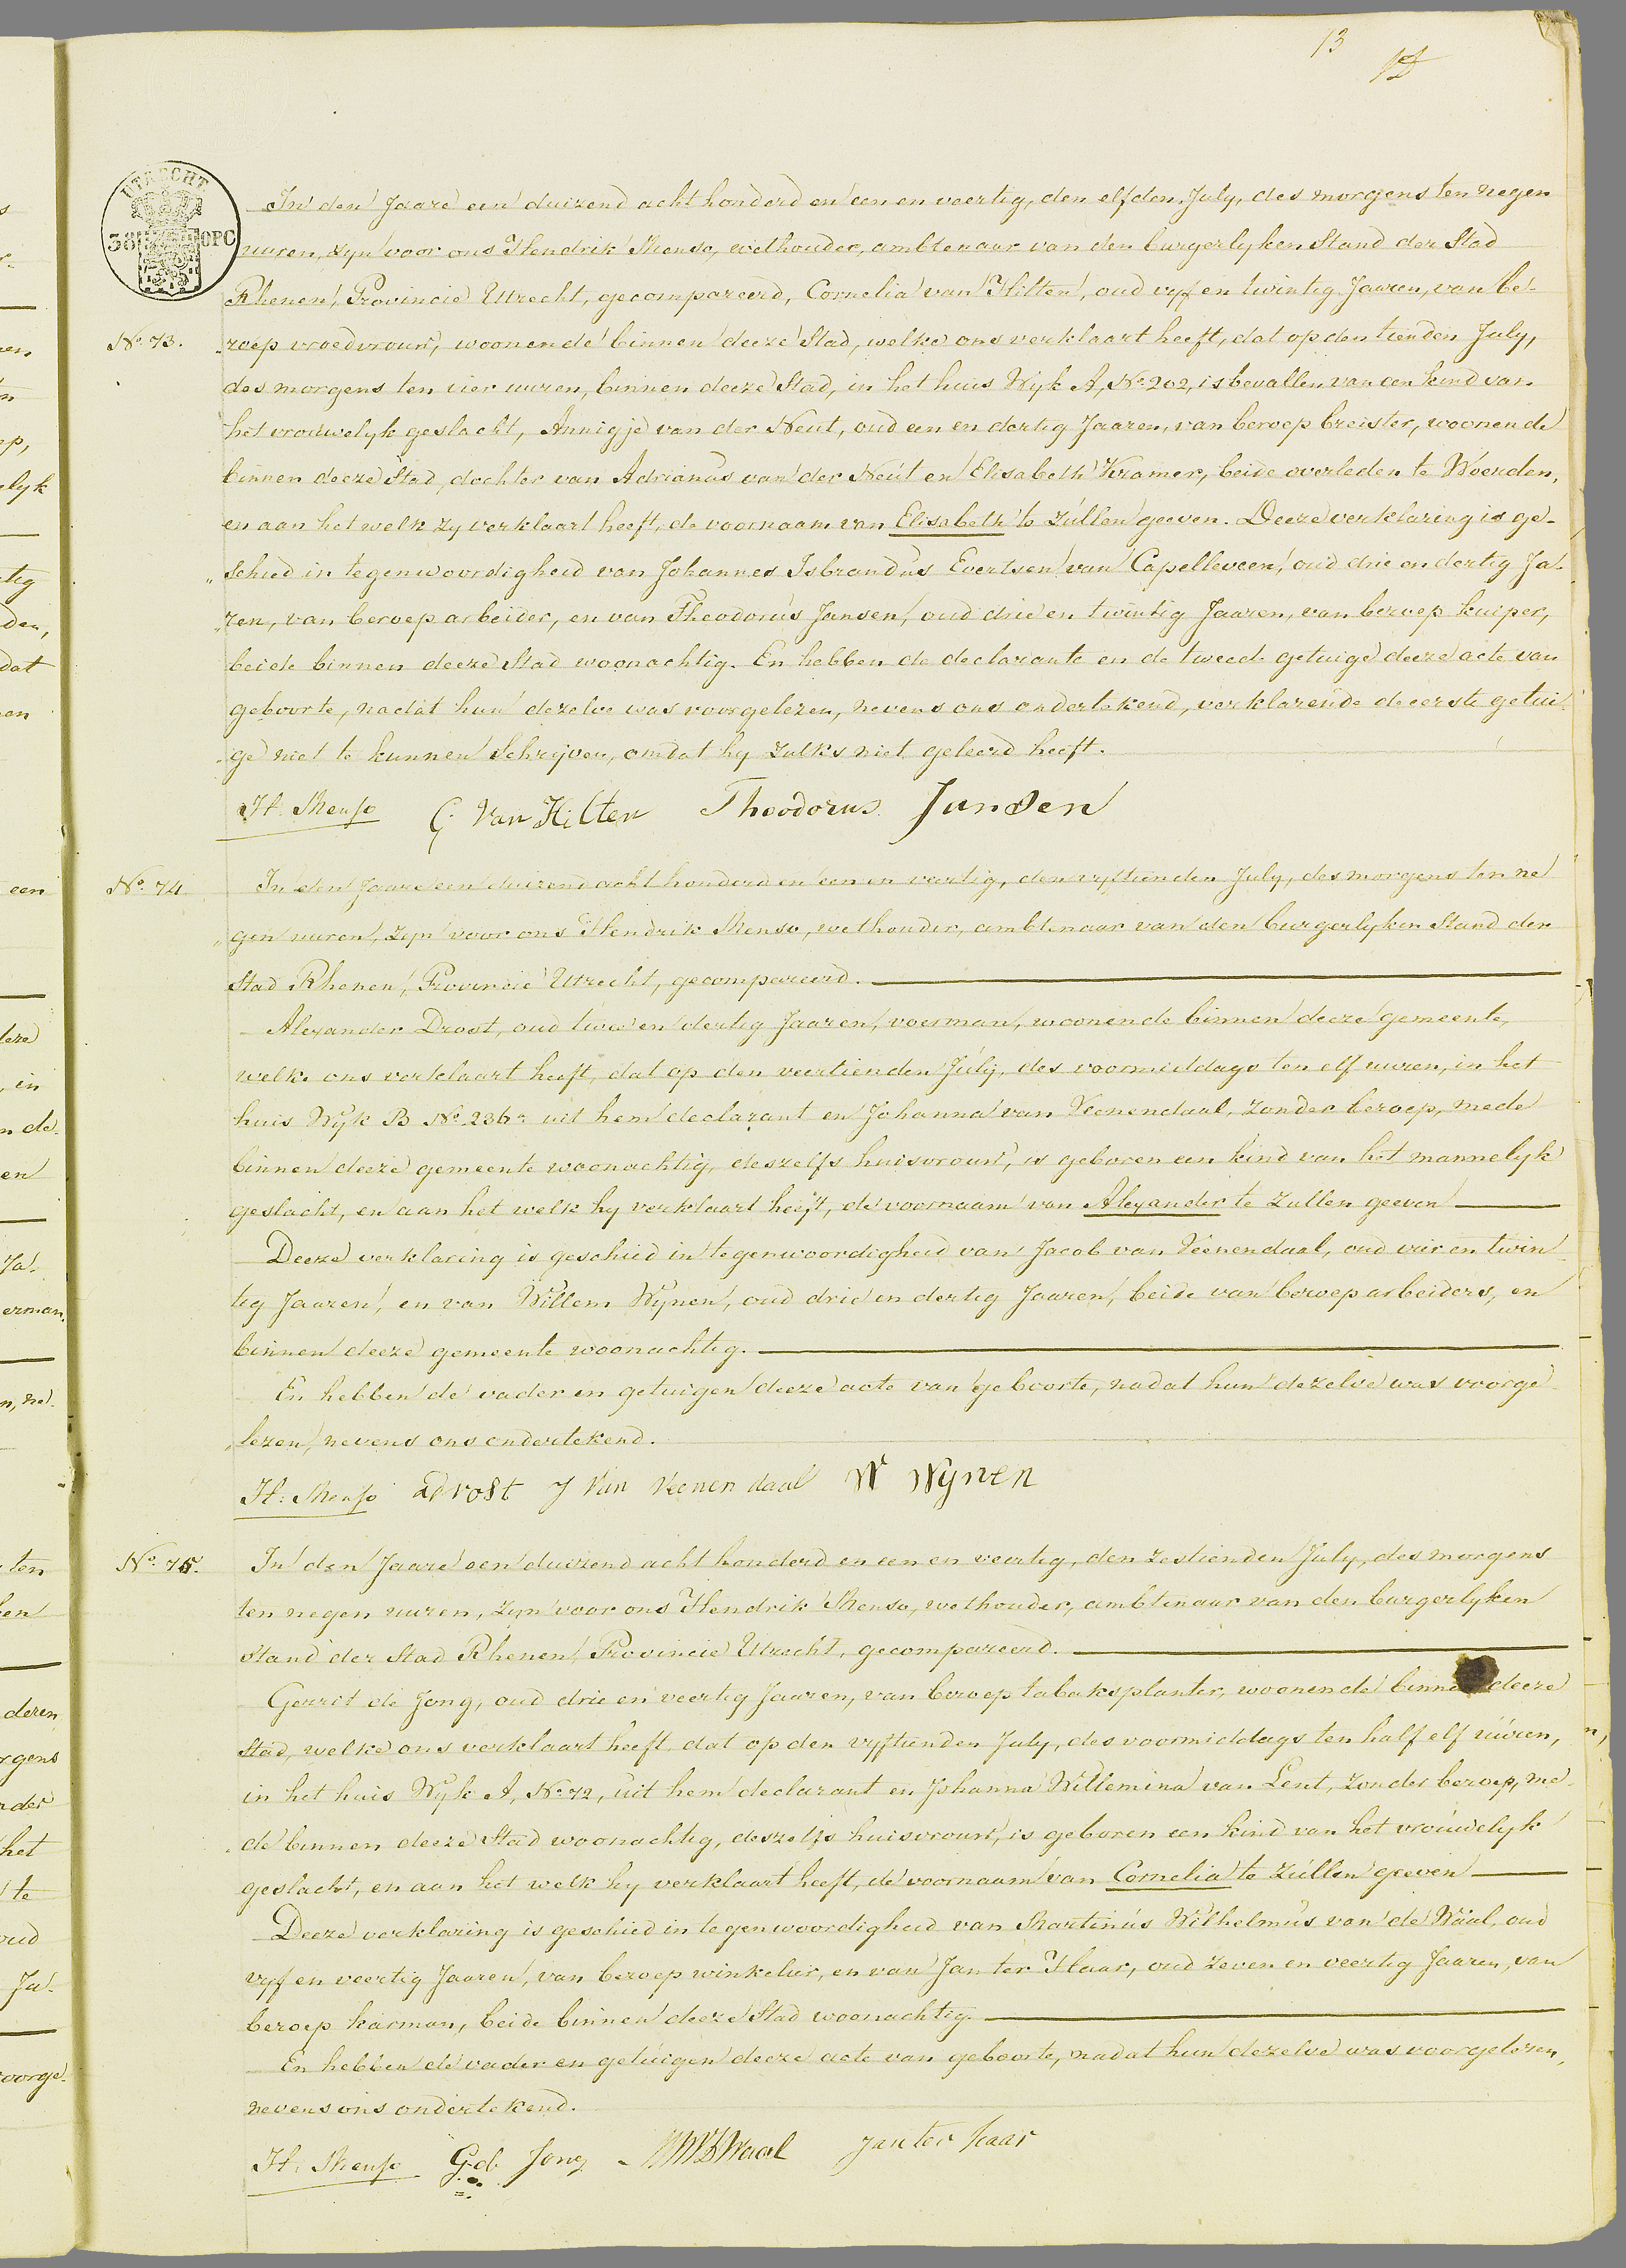 13
UTRECHT
38 OPC
In den Jaare een duizend acht honderd en een en veertig, den elfden July, des morgens ten negen
uuren, zyn voor ons Hendrik Menso, wethouder, ambtenaar van den burgerlyken Stand der Stad
Rhenen, Provincie Utrecht, gecompareerd, Cornelia van Hilten, oud vyf en twintig Jaaren, van be-
No. 73.
roep vroedvrouw, woonende binnen deeze Stad, welke ons verklaart heeft, dat op den tienden July,
des morgens ten vier uuren, binnen deeze Stad, in het huis Wyk A, No. 202, is bevallen van een kind van
het vrouwelyk geslacht, Annigje van der Neut, oud een en dertig Jaaren, van beroep breister, woonende
binnen deeze Stad, dochter van Adrianus van der Neut en Elisabeth Kramer, beide overleden te Woerden,
en aan het welk zy verklaart heeft, de voornaam van Elisabeth te zullen geeven. Deeze verklaring is ge-
„schied in tegenwoordigheid van Johannes Isbrandus Evertsen van Capelleveen, oud drie en dertig Ja-
„ren, van beroep arbeider, en van Theodorus Jansen, oud drie en twintig Jaaren, van beroep kuiper,
beide binnen deeze Stad woonachtig. En hebben de declarante en de tweede getuige deeze acte van
geboorte, nadat hun dezelve was voorgelezen, nevens ons ondertekend, verklarende de eerste getui-
„ge niet te kunnen Schrijven, omdat hy zulks niet geleerd heeft.
H. Menso C. Van Hilten Theodorus Jansen
No. 74
In den Jaare een duizend acht honderd en een en veertig, den vyftienden July, des morgens ten ne
„gen uuren, zyn voor ons Hendrik Menso, wethouder, ambtenaar van den burgerlyken Stand der
Stad Rhenen, Provincie Utrecht, gecompareerd.
Alexander Drost, oud twee en dertig Jaaren, voerman, woonende binnen deeze gemeente,
welke ons verklaart heeft, dat op den veertienden July, des voormiddags ten elf uuren, in het
huis Wyk B No. 236a uit hem declarant en Johanna van Veenendaal, zonder beroep, mede
binnen deeze gemeente woonachtig, deszelfs huisvrouw, is geboren een kind van het mannelyk
geslacht, en aan het welk hy verklaart heeft, de voornaam van Alexander te zullen geeven
Deeze verklaring is geschied in tegenwoordigheid van Jacob van Veenendaal, oud vier en twin
tig Jaaren, en van Willem Wynen, oud drie en dertig Jaaren, beide van beroep arbeiders, en
binnen deeze gemeente woonachtig.
En hebben de vader en getuigen deeze acte van geboorte, nadat hun dezelve was voorge
„lezen, nevens ons ondertekend.
H: Menso A drost J Van Veenen daal W Wynen
No. 75.
In den Jaare een duizend acht honderd en een en veertig, den zestienden July, des morgens
ten negen uuren, zyn voor ons Hendrik Menso, wethouder, ambtenaar van den burgerlyken
Stand der Stad Rhenen, Provincie Utrecht, gecompareerd.
Gerrit de Jong, oud drie en veertig Jaaren, van beroep tabaksplanter, woonende binnen deeze
Stad, welke ons verklaart heeft dat op den vyftienden July, des voormiddags ten half elf uuren,
in het huis Wyk A, No. 72, uit hem declarant en Johanna Willemina van Lent, zonder beroep, me-
„de binnen deeze Stad woonachtig, deszelfs huisvrouw, is geboren een kind van het vrouwelyk
geslacht, en aan het welk hy verklaart heeft, de voornaam van Cornelia te zullen geeven
Deeze verklaring is geschied in tegenwoordigheid van Martinus Wilhelmus van de Waal, oud
vyf en veertig Jaaren, van beroep winkelier, en van Jan ter Haar, oud zeven en veertig Jaaren, van
beroep karman, beide binnen deeze Stad woonachtig.
En hebben de vader en getuigen deeze acte van geboorte, nadat hun dezelve was voorgelezen,
nevens ons ondertekend.
H. Menso G. d. Jong Waal Jan ter haar